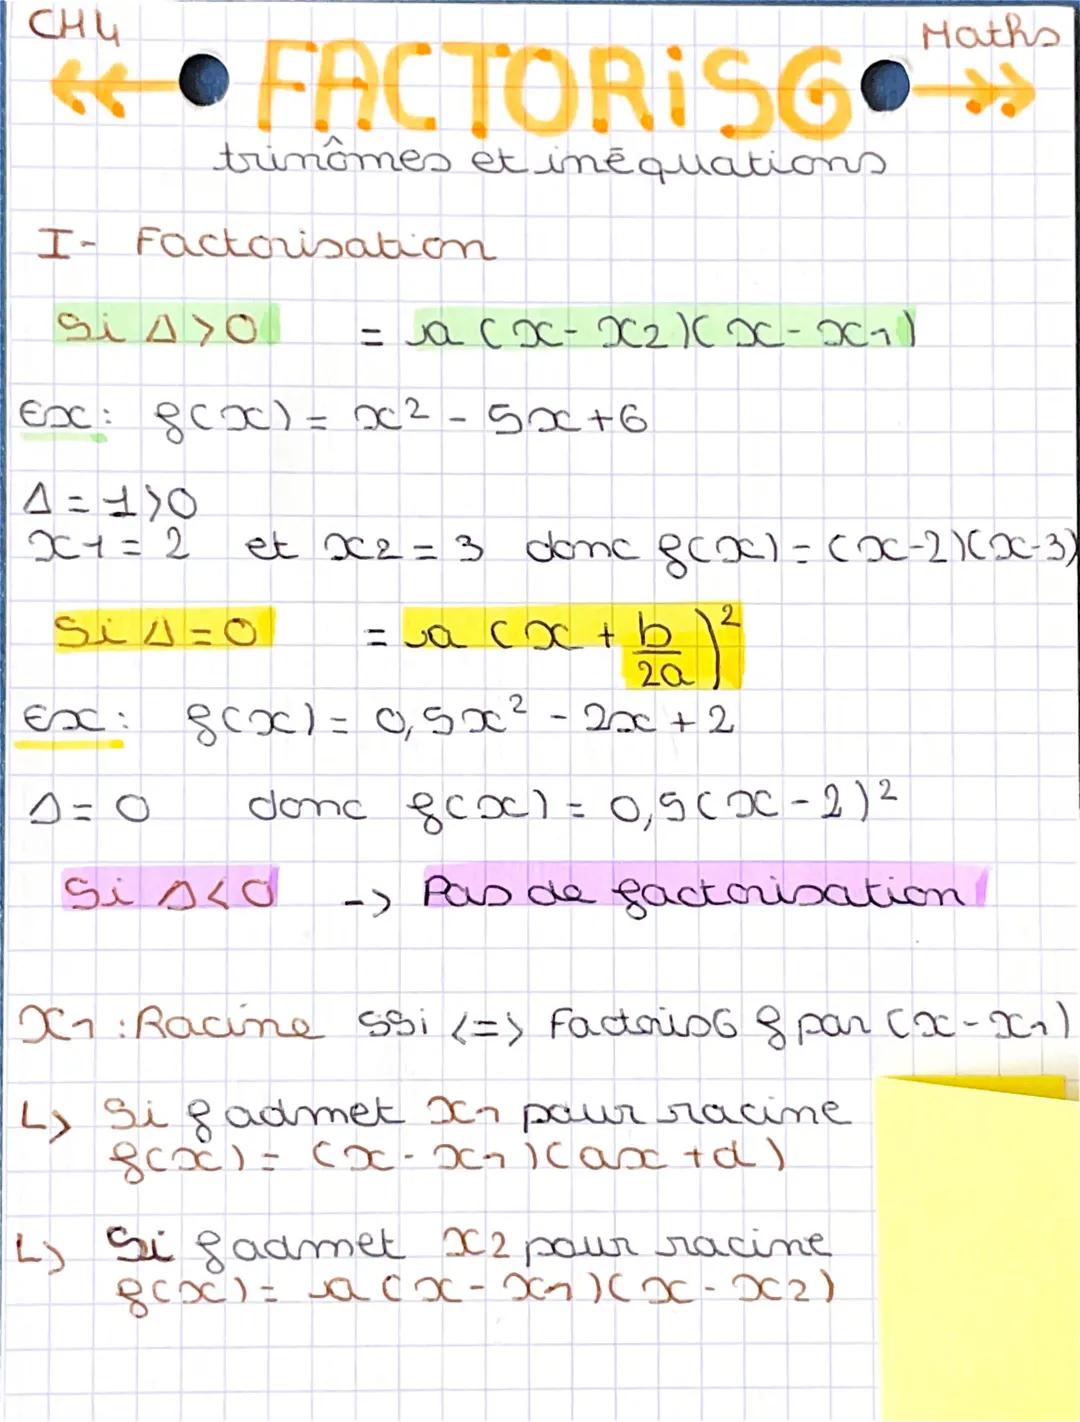 CH4
Maths
FACTORIS6
trinômes et inéquations
I- Factorisation
Si Δ>0 = a (x-x2)(x-x1)
Ex: f(x) = x² - 5x+6
Δ = 1>0
x1 = 2 et x2 = 3 donc f(x) = (x-2)(x-3)
Si Δ=0 = a (x + b/2a)²
Ex: f(x) = 0,5x² - 2x + 2
Δ= 0 donc f(x) = 0,5(x-2)²
Si Δ<0 -> Pas de factorisation
x1 : Racine ssi <=> Factoris6 f par (x-x1)
L> Si f admet x1 pour racine
f(x) = (x-x1)(ax+d)
L> Si f admet x2 pour racine
f(x) = a (x-x1)(x-x2)